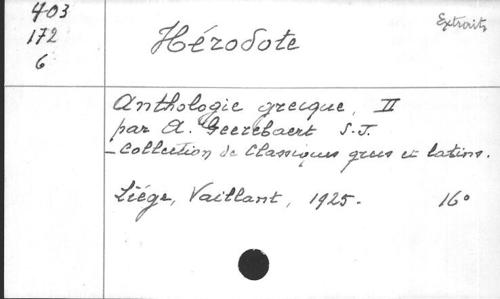 403
172
6
Hérodote
Extraits
Anthologie grecque, II
par A. Geerebaert S.J.
- Collection de Classiques grecs et latins.
Liége, Vaillant, 1925. 16°